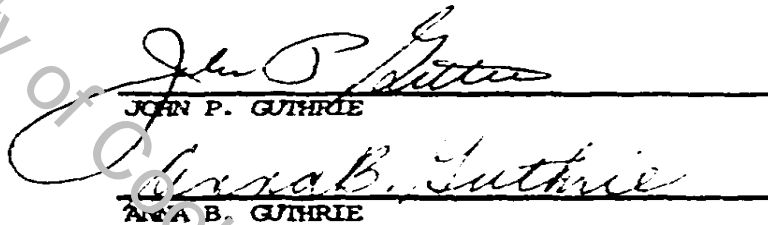 John P. Guthrie
JOHN P. GUTHRIE
Anna B. Guthrie
ANNA B. GUTHRIE